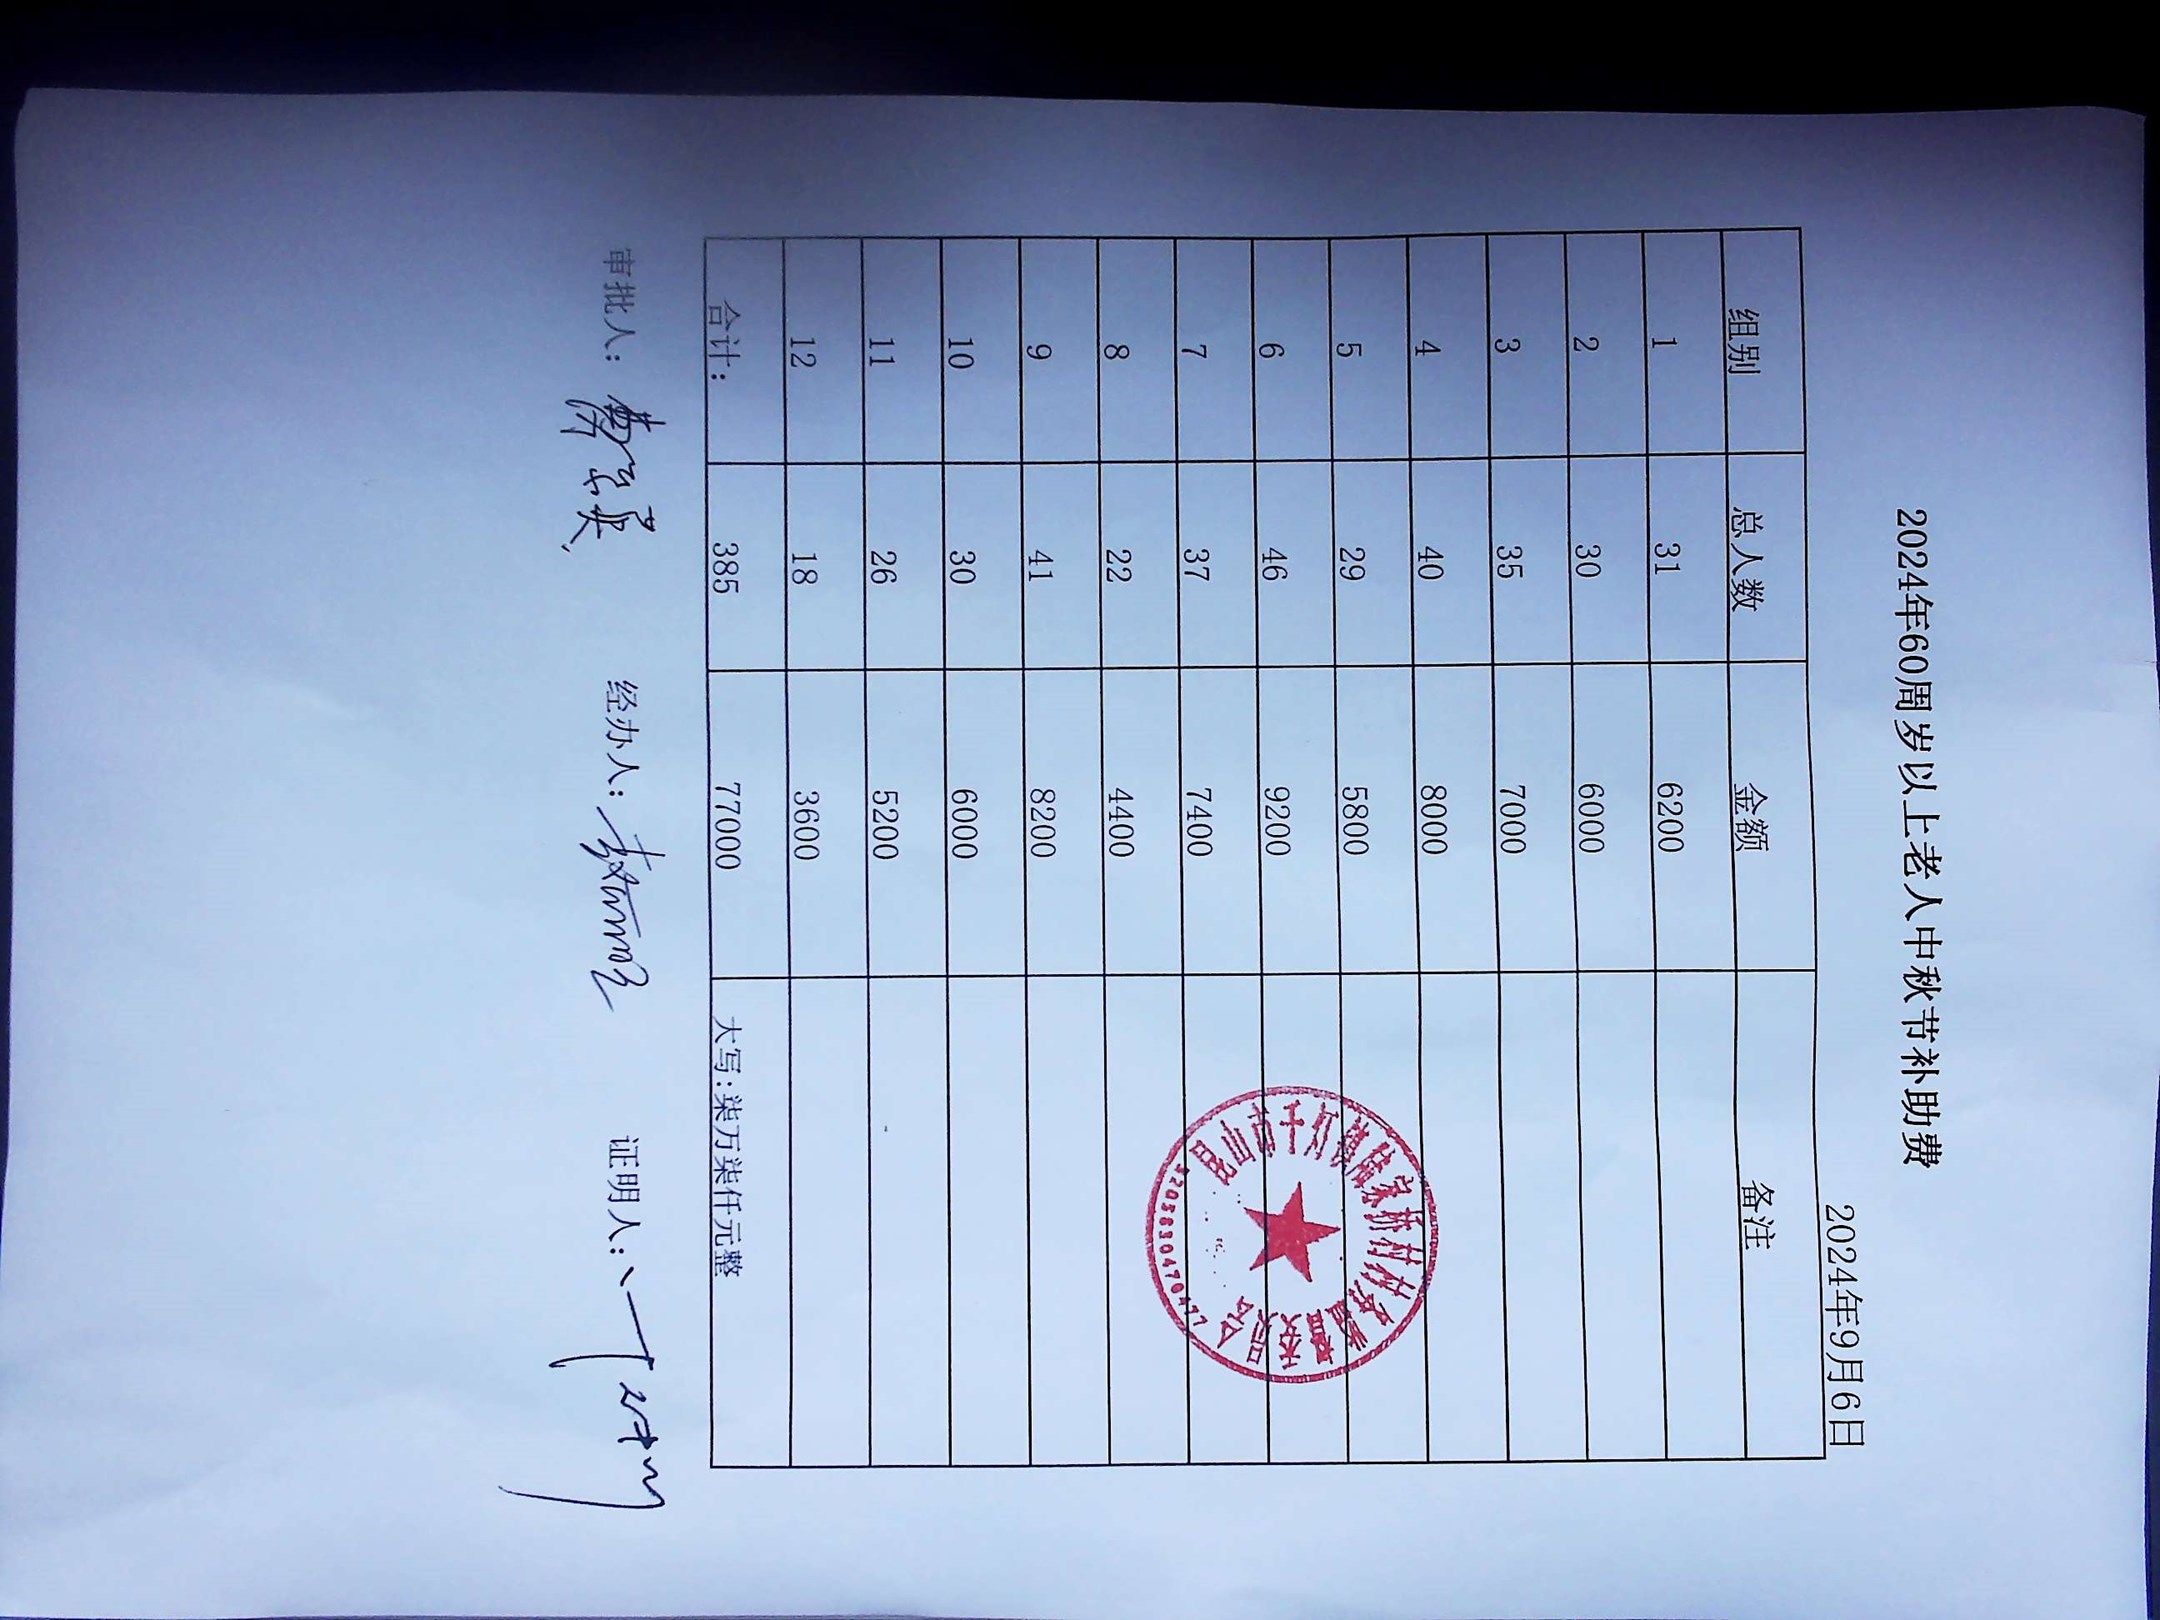 2024年60周岁以上老人中秋节补助费
2024年9月6日
组别 总人数 金额 备注
1 31 6200
2 30 6000
3 35 7000
4 40 8000
5 29 5800
6 46 9200
7 37 7400
8 22 4400
9 41 8200
10 30 6000
11 26 5200
12 18 3600
合计: 385 77000 大写:柒万柒仟元整
审批人: 经办人: 证明人:
昆山市千灯镇陆家桥村村务监督委员会